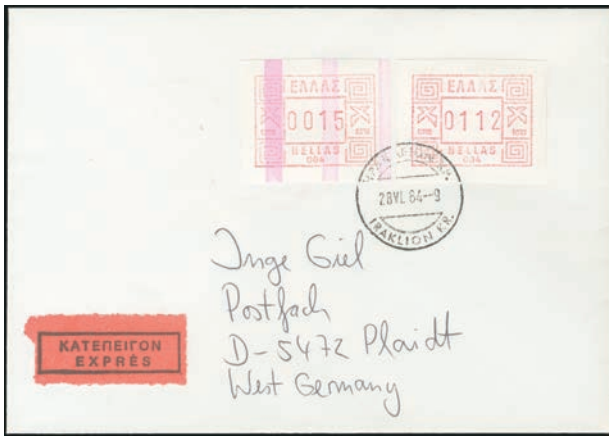 ΕΛΛΑΣ
0015
HELLAS
004
ΕΛΛΑΣ
0112
HELLAS
004
28VI.84--9
IRAKLION KR.
Inge Giel
Postfach
D-5472 Plaidt
West Germany
ΚΑΤΕΠΕΙΓΟΝ
EXPRÈS